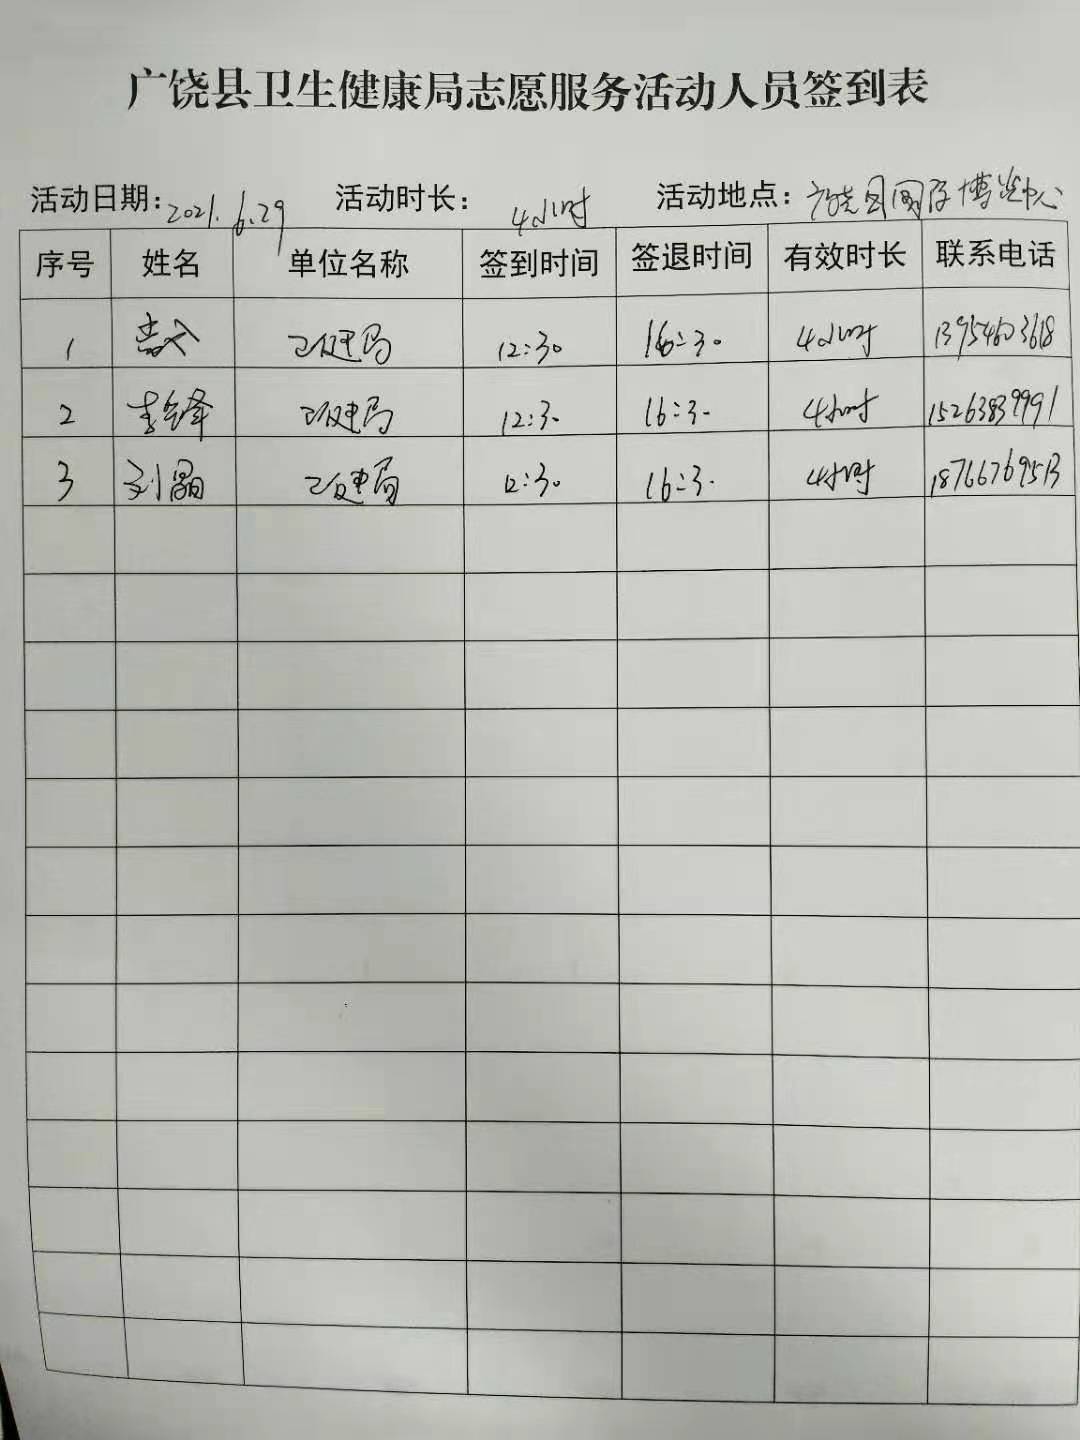 广饶县卫生健康局志愿服务活动人员签到表
活动日期：2021.6.29 活动时长：4小时 活动地点：广饶国际博览中心
序号 姓名 单位名称 签到时间 签退时间 有效时长 联系电话
1 卫健局 12:30 16:30 4小时 13954603618
2 卫健局 12:30 16:30 4小时 15263839991
3 刘晶 卫健局 12:30 16:30 4小时 18766769513